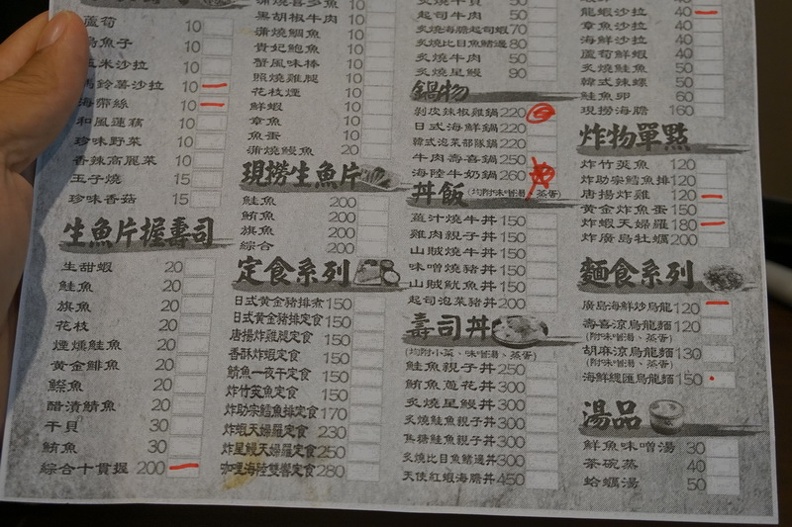 蘆筍 10
烏魚子 10
玉米沙拉 10
馬鈴薯沙拉 10
海帶絲 10
和風蓮藕 10
珍味野菜 10
香辣高麗菜 10
玉子燒 15
珍味香菇 15
生魚片握壽司
生甜蝦 20
鮭魚 20
旗魚 20
花枝 20
煙燻鮭魚 20
黃金鯡魚 20
鰶魚 20
醋漬鯖魚 20
干貝 30
鮪魚 30
綜合十貫握 200
黑胡椒牛肉 10
蒲燒鯛魚 10
貴妃鮑魚 10
蟹風味棒 10
照燒雞腿 10
花枝煙 10
鮮蝦 10
章魚 10
魚蛋 10
蒲燒鰻魚 20
現撈生魚片
鮭魚 200
鮪魚 200
旗魚 200
綜合 200
定食系列
日式黃金豬排煮 150
日式黃金豬排定食 150
唐揚炸雞腿定食 150
香酥炸蝦定食 150
鯖魚一夜干定食 150
炸竹筴魚定食 150
炸助宗鱈魚排定食 170
炸蝦天婦羅定食 230
炸星鰻天婦羅定食 250
咖哩海陸雙響定食 280
炙燒干貝 50
起司牛肉 50
炙燒海膽起司蝦 70
炙燒比目魚鰭邊 80
炙燒牛肉 50
炙燒星鰻 90
鍋物
剝皮辣椒雞鍋 220
日式海鮮鍋 220
韓式泡菜部隊鍋 220
牛肉壽喜鍋 250
海陸牛奶鍋 260
丼飯 (均附味噌湯、蒸蛋)
薑汁燒牛丼 150
雞肉親子丼 150
山賊燒牛丼 150
味噌燒豬丼 150
山賊魷魚丼 150
起司泡菜豬丼 200
壽司丼
(均附小菜、味噌湯、蒸蛋)
鮭魚親子丼 250
鮪魚蔥花丼 300
炙燒星鰻丼 300
焦糖鮭魚親子丼 300
炙燒比目魚鰭邊丼 300
天使紅蝦海膽丼 450
龍蝦沙拉 40
章魚沙拉 40
海鮮沙拉 40
蘆筍鮮蝦 40
炙燒鮭魚 50
韓式辣螺 50
鮭魚卵 60
現撈海膽 160
炸物單點
炸竹筴魚 120
炸助宗鱈魚排 120
唐揚炸雞 120
黃金炸魚蛋 150
炸蝦天婦羅 180
炸廣島牡蠣 200
麵食系列
廣島海鮮炒烏龍 120
壽喜涼烏龍麵 120
(附味噌湯、蒸蛋)
胡麻涼烏龍麵 130
(附味噌湯、蒸蛋)
海鮮總匯烏龍麵 150
湯品
鮮魚味噌湯 30
茶碗蒸 40
蛤蠣湯 50